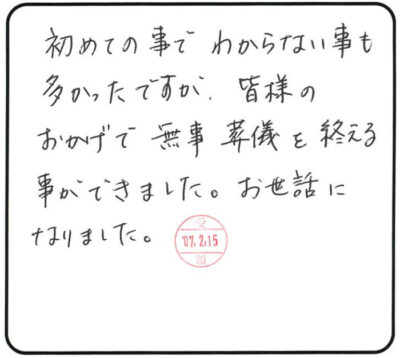 初めての事で わからない事も
多かったですが、皆様の
おかげで 無事 葬儀を終える
事ができました。お世話に
なりました。
受
'07.2.15